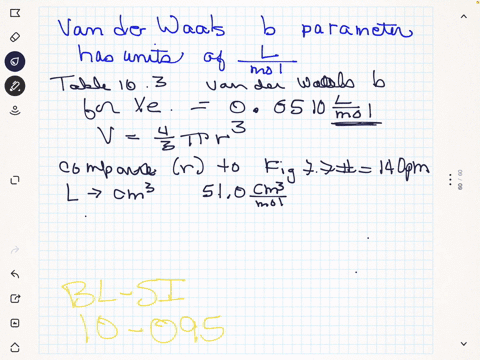 Van der Waals b parameter
has units of L/mol
Table 10.3 van der Waals b
for Xe. = 0.0510 L/mol
V = 4/3 πr³
compare (r) to Fig 7.7 # = 140pm
L → cm³ 51.0 cm³/mol
BL-SI
10-095